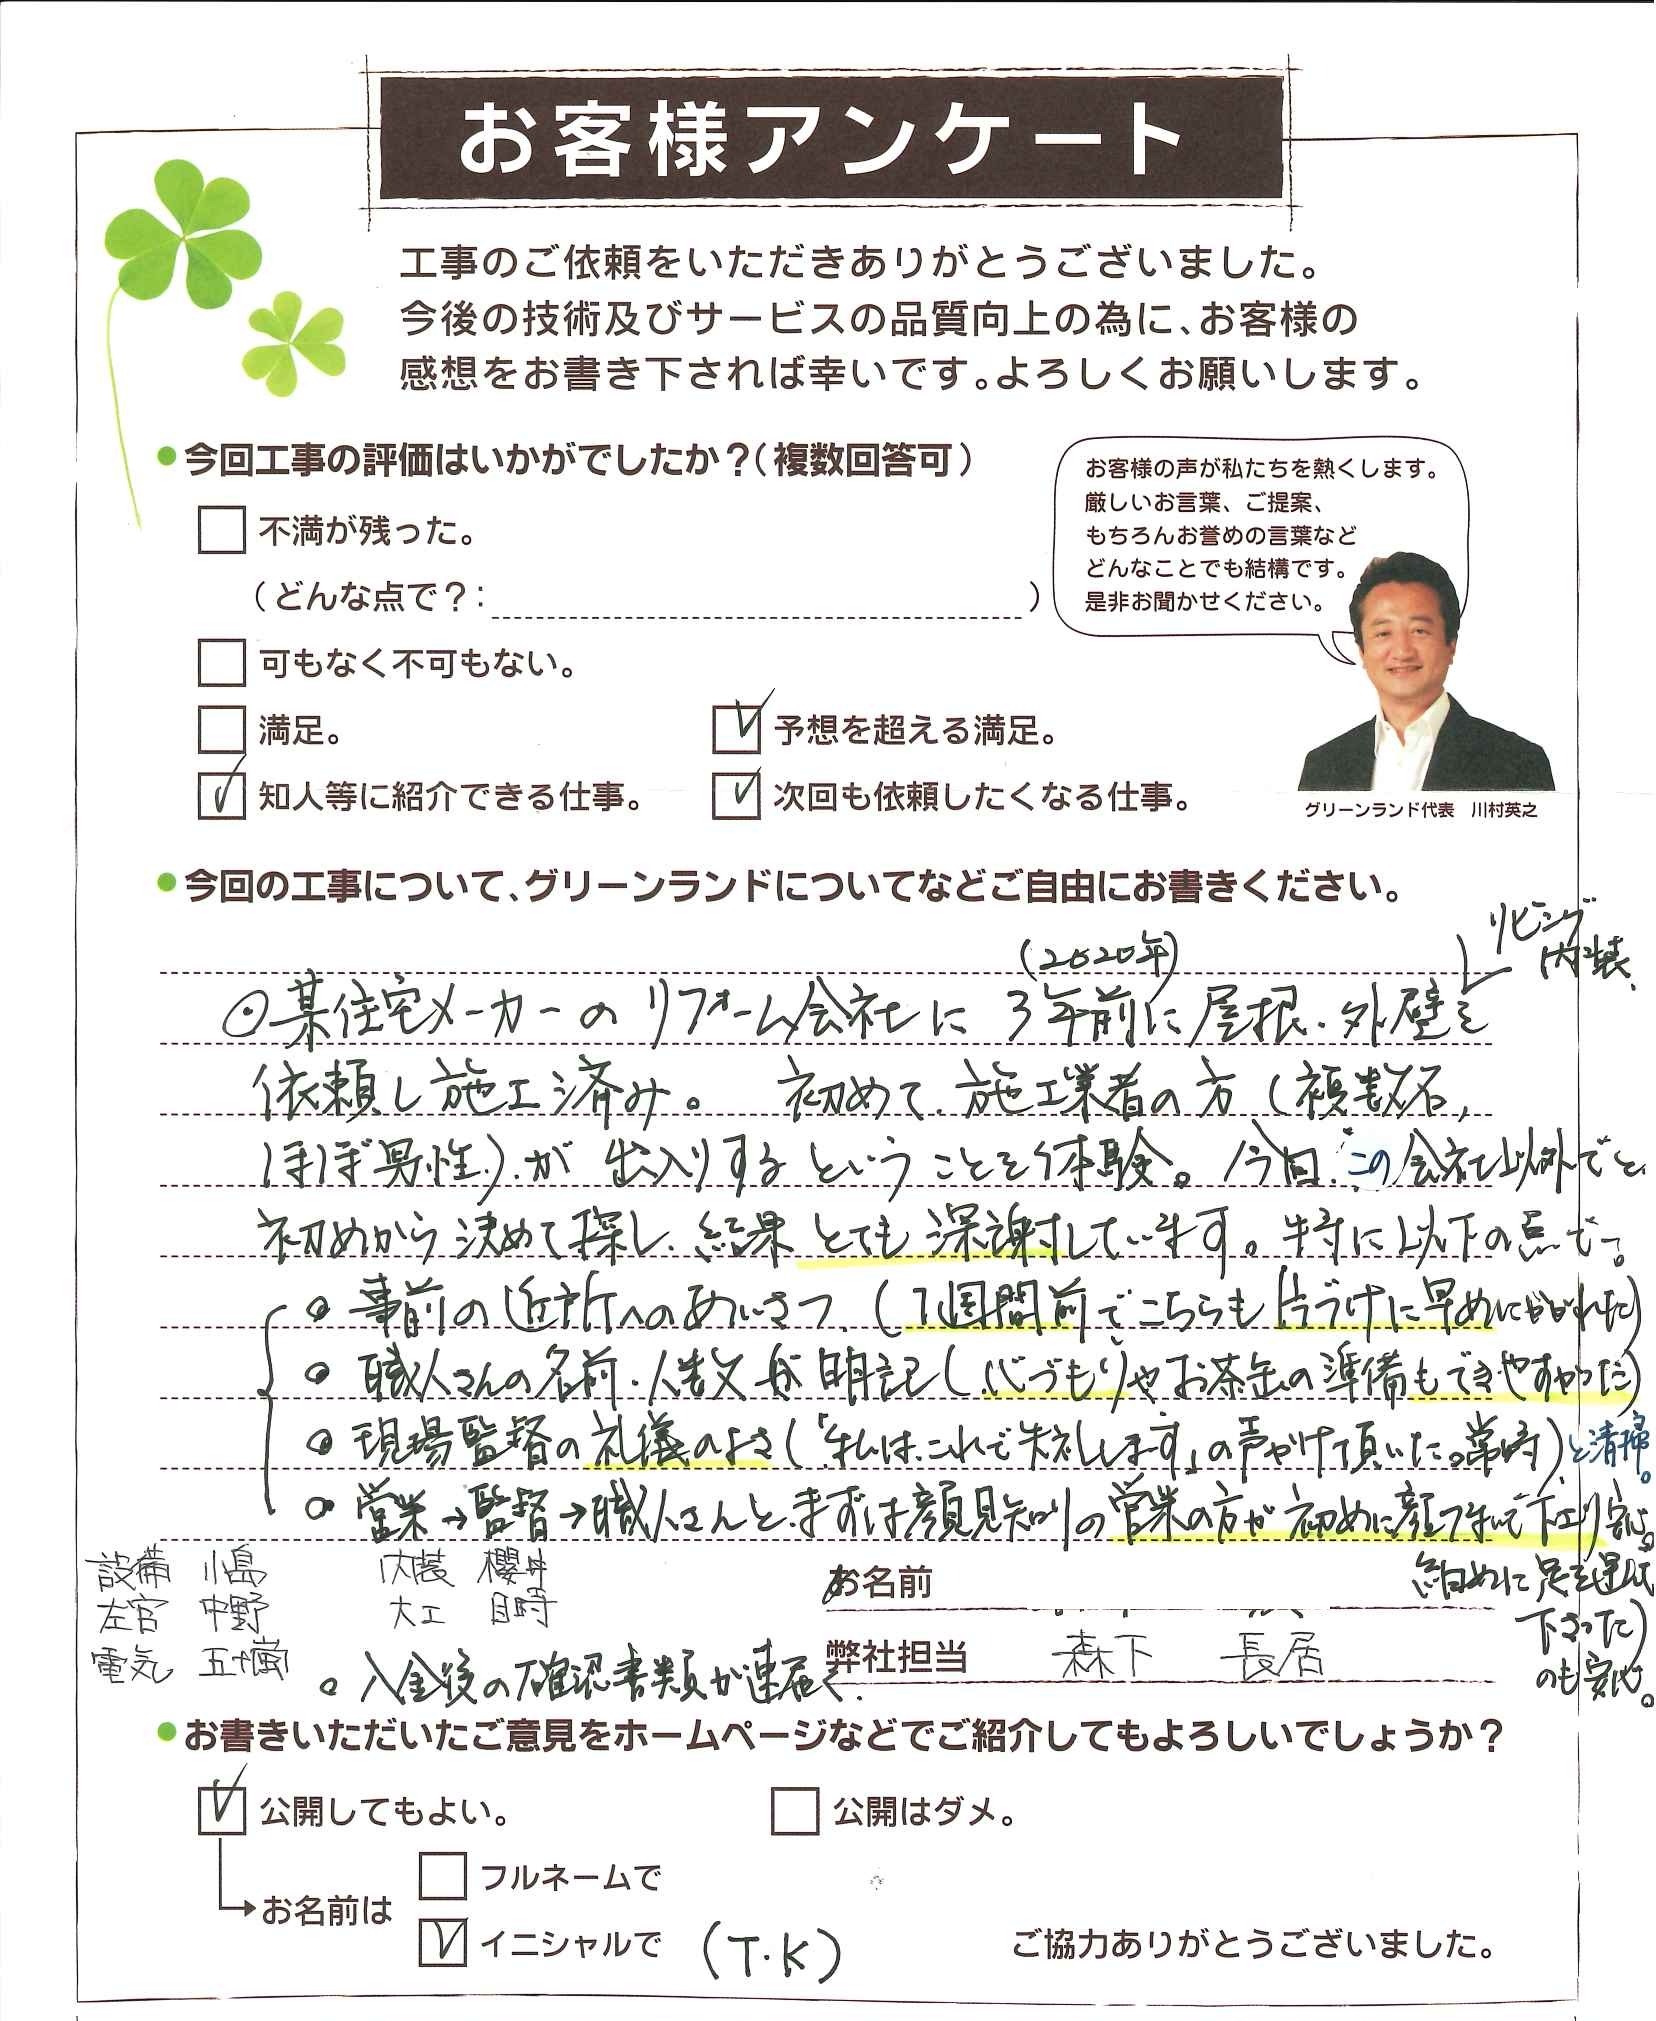 お客様アンケート
工事のご依頼をいただきありがとうございました。
今後の技術及びサービスの品質向上の為に、お客様の
感想をお書き下されば幸いです。よろしくお願いします。
●今回工事の評価はいかがでしたか?(複数回答可)
不満が残った。
(どんな点で?: )
可もなく不可もない。
満足。
予想を超える満足。
知人等に紹介できる仕事。
次回も依頼したくなる仕事。
お客様の声が私たちを熱くします。
厳しいお言葉、ご提案、
もちろんお誉めの言葉など
どんなことでも結構です。
是非お聞かせください。
グリーンランド代表 川村英之
●今回の工事について、グリーンランドについてなどご自由にお書きください。
リビング
内装、
(2020年)
⊙某住宅メーカーのリフォーム会社に3年前に屋根・外壁を
依頼し施工済み。 初めて、施工業者の方(複数名,
ほぼ男性)が出入りするということを体験。今回、この会社以外でと、
初めから決めて探し、結果とても深謝しています。特に以下の点で。
・事前の近所へのあいさつ、(1週間前でこちらも片づけに早めにかかれた)
・職人さんの名前・人数が明記(心づもりやお茶缶の準備もできやすかった)
・現場監督の礼儀のよさ(「私は、これで失礼します」の声がけて頂いた。常時)と清掃。
・営業→監督→職人さんと、まずは顔見知りの営業の方が初めに顔つなぎして下さり安心。
細目めに足を運んで
下さった)
のも安心。
設備 小島 内装 櫻井
左官 中野 大工 目時
電気 五十嵐
・入金後の確認書類が速届く.
お名前
弊社担当 森下 長居
●お書きいただいたご意見をホームページなどでご紹介してもよろしいでしょうか?
公開してもよい。
公開はダメ。
お名前は
フルネームで
イニシャルで (T・K)
ご協力ありがとうございました。